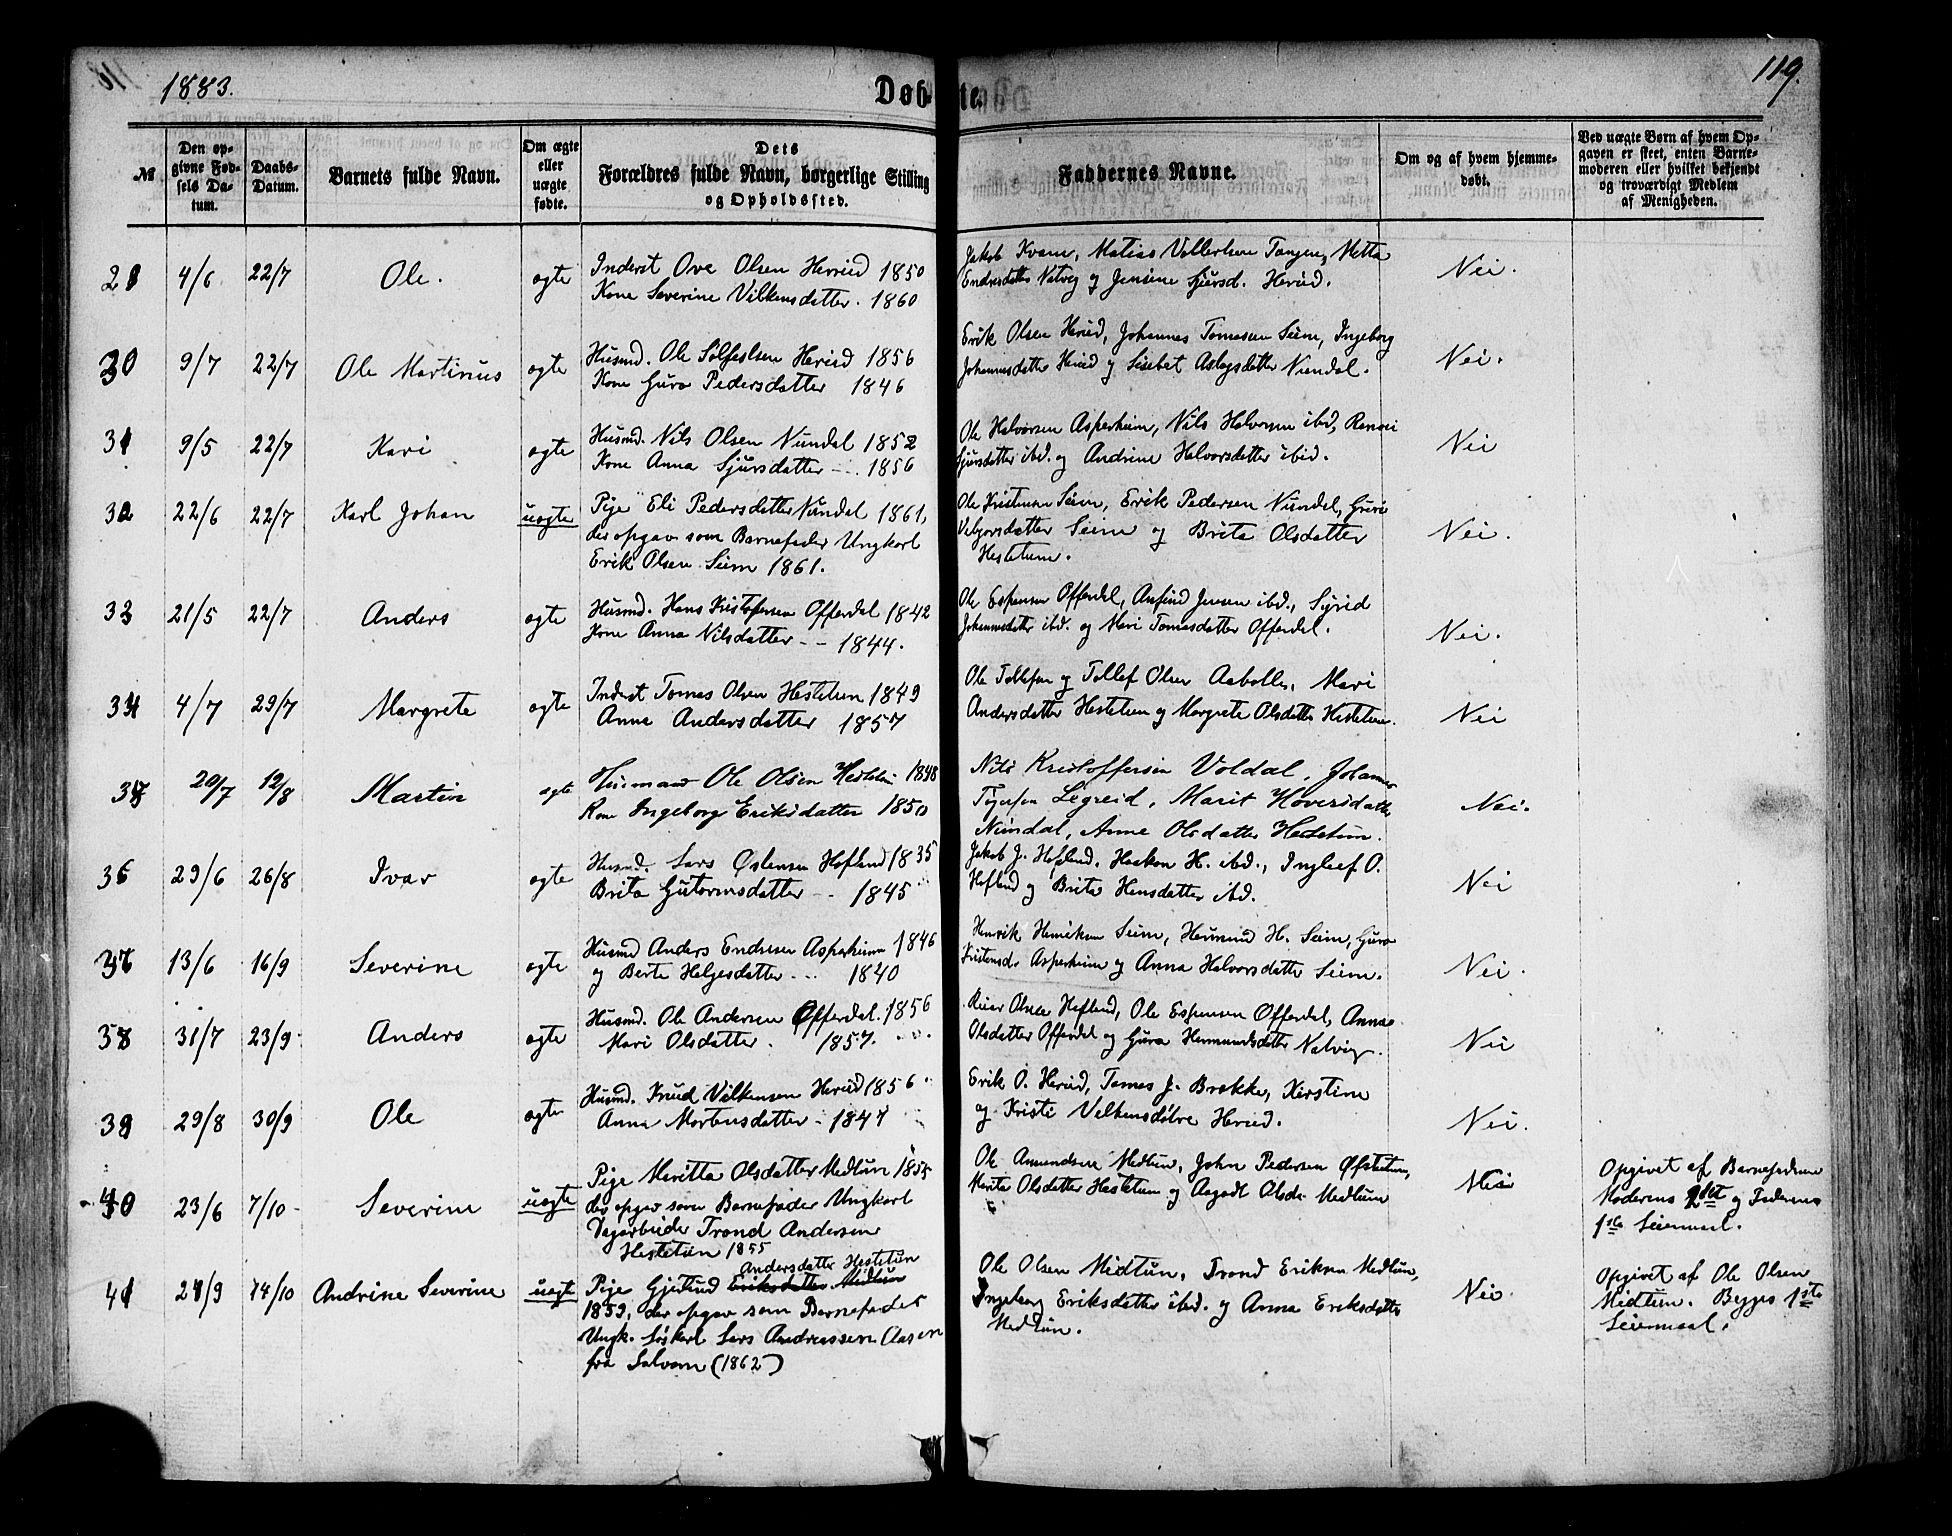 1883.
Døbte.
119.
№ | Den opgivne Fødsels Datum. | Daabs-Datum. | Barnets fulde Navn. | Om ægte eller uægte fødte. | Dets Forældres fulde Navn, borgerlige Stilling og Opholdssted. | Faddernes Navne. | Om og af hvem hjemmedøbt. | Ved uægte Børn af hvem Opgaven er skeet, enten Barnemoderen eller hvilket bekjendt og troværdigt Medlem af Menigheden.
4/6 22/7 Ole. ægte Inderst Ove Olsen Hereid 1850 Jakob Kvam, Matias Vollertsen Tangen, Metta Nei.
Kone Severine Vilkensdatter. 1860 Endresdatter Natvig og Jensine Sjursd. Hereid.
30 9/7 22/7 Ole Martinus ægte Husmd. Ole Sølfestsen Hereid 1856 Erik Olsen Hereid, Johannes Tomassen Seim, Ingeborg Nei.
Kone Guro Pedersdatter 1846 Johannesdatter Hereid og Sisebet Aslagsdatter Nundal.
31 9/5 22/7 Kari ægte Husmd. Nils Olsen Nundal 1852 Ole Halvorsen Asperheim, Nils Halvorsen ibd, Ranvei Nei
Kone Anna Sjursdatter — 1856 Sjursdatter ibd. og Andrine Halvorsdatter ibid.
32 22/6 22/7 Karl Johan uægte Pige Eli Pedersdatter Nundal 1861, Ole Kristensen Seim, Erik Pedersen Nundal, Guri Nei.
der opgav som Barnefader Ungkarl Seim og Brita Olsdatter
Erik Olsen Seim 1861. Hestetun.
33 21/5 22/7 Anders ægte Husmd. Hans Kristofersen Offerdal 1842 Ole Espensen Offerdal, Anfind Jensen ibd., Sigrid Nei.
Kone Anna Nilsdatter — 1844. Johannesdatter ibd. og Mari Tomasdatter Offerdal.
34 4/7 29/7 Margrete ægte Inderst Tomas Olsen Hestetun 1849 Ole Tollefsen og Tollef Olsen Aabolle, Mari Nei
Anna Andersdatter 1857 Andersdatter Hestetun og Margrete Olsdatter Hestetun.
20/7 12/8 Martin ægte Husmand Ole Olsen Hestetun 1848 Nils Kristoffersen Voldal, Johannes Nei.
Kone Ingeborg Eriksdatter 1850 Legreid, Marit Hoversdatter
Nundal, Anne Olsdatter Hestetun.
36 29/6 26/8 Ivar ægte Husmd. Lars Østensen Hofland 1835 Jakob J. Hofland, Haakon H. ibd., Ingleef O. Nei
Brita Gutormsdatter — 1845 Hofland og Brita Hansdatter ibd.
37 13/6 16/9 Severine ægte Husmd Anders Endresen Asperheim 1846 Henrik Henriksen Seim, Hermund H. Seim, Guro Nei.
og Berte Helgesdatter — 1840 Kristensd. Asperheim og Anna Halvorsdatter Seim.
38 31/7 23/9 Anders ægte Husmd. Ole Andersen Offerdal. 1856 Reiar Olsen Hofland, Ole Espensen Offerdal, Anna Nei
Mari Olsdatter. 1857. Olsdatter Offerdal og Guro Hermundsdatter Natvig.
39 29/8 30/9 Ole ægte Husmd. Knud Vilkensen Hereid 1856 Erik O. Hereid, Tomas J. Brække, Kerstine Nei.
Anna Mortensdatter - 1847 og Kristi Velkensdøtre Hereid.
40 23/6 7/10 Severine uægte Pige Maritta Olsdatter Medtun 1855 Ole Amundsen Medtun, John Pedersen Øfstetun, Nei Opgivet af Barnefaderen
der opgav som Barnefader Ungkarl Marita Olsdatter Hestetun og Aagodt Olsdr Medtun Moderens 2det og Faderens
Dagarbeider Trond Andersen 1ste Leiermaal.
Hestetun 1855
41 14/10 Andrine Severine uægte Pige Gjertrud Eriksdatter Medtun Andersdatter Hestetun Ole Olsen Midtun, Trond Eriksen Medtun, Nei. Opgivet af Ole Olsen
1859, der opgav som Barnefader Ingeborg Eriksdatter ibd. og Anna Eriksdatter Midtun. Begges 1ste
Ungk. Lars Andreassen Aasen Medtun. Leiermaal.
fra Solvorn (1862)